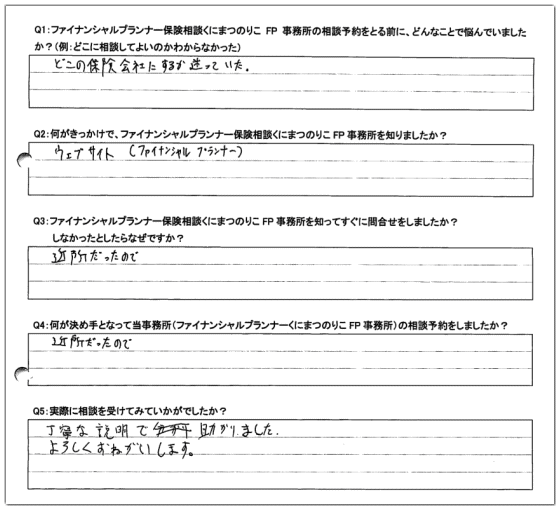 Q1:ファイナンシャルプランナー保険相談くにまつのりこ FP 事務所の相談予約をとる前に、どんなことで悩んでいました
か?(例:どこに相談してよいのかわからなかった)
どこの保険会社にするか迷っていた。
Q2:何がきっかけで、ファイナンシャルプランナー保険相談くにまつのりこ FP 事務所を知りましたか?
ウェブサイト (ファイナンシャルプランナー)
Q3:ファイナンシャルプランナー保険相談くにまつのりこ FP 事務所を知ってすぐに問合せをしましたか?
しなかったとしたらなぜですか?
近所だったので
Q4:何が決め手となって当事務所(ファイナンシャルプランナーくにまつのりこ FP 事務所)の相談予約をしましたか?
近所だったので
Q5:実際に相談を受けてみていかがでしたか?
丁寧な説明で 助かりました.
よろしくおねがいします。